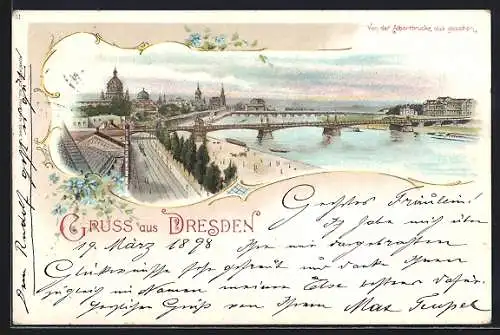 Von der Albertbrücke aus gesehen.
GRUSS aus DRESDEN
Geehrtes Fräulein!
Ich habe mich über
19. März 1898 Ihre mir dargebrachten
Glückwünsche sehr gefreut und danke Ihnen
zugleich im Namen meiner Else bestens dafür.
Herzlichen Gruß von Ihrem Max